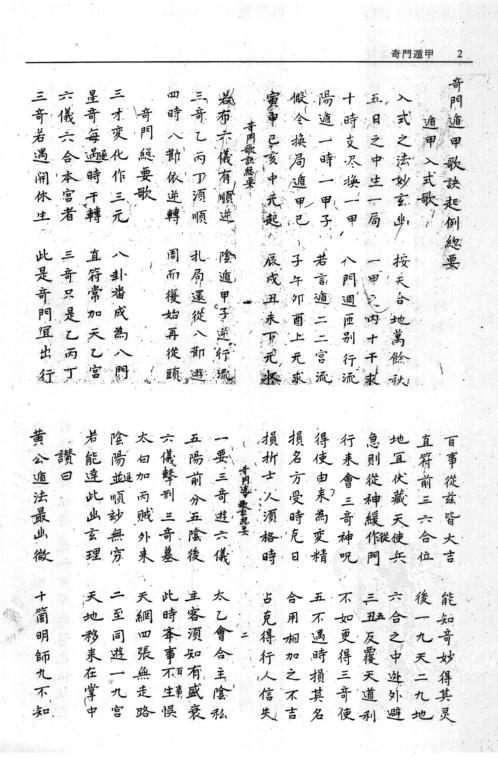 奇門遁甲 2
奇門遁甲歌訣起例總要
遁甲入式歌
入式之法妙玄幽 按天合地萬餘秋
五日之中生一局 一甲之內十干求
十時支尽換一甲 八門週匝別行流
陽遁一時一甲子 若言遁二二宮流
假令換局遁甲己 子午卯酉上元求
寅申巳亥中元起 辰戌丑未下元
奇門歌訣總要 一
若布六儀有順逆 陰遁甲子逆行流
三奇乙丙丁須順 孔局還從八節遊
四時八節依逆轉 周而復始再從頭
奇門總要歌
三才変化作三元 八卦畨成為八門
星奇每遇時干轉 直符常加天乙宮
六儀六合本宮者 三奇只是乙丙丁
三奇若遇開休生 此是奇門宜出行
百事從玆皆大吉 能知奇妙得其灵
直符前三六合位 後一九天二九地
地宜伏藏天使兵 六合之中迯外避
急則從神緩從門 三五反覆天道利
行来會三奇神呪 不如更得三奇使
得使由来為変精 五不遇時損其名
損名方受時尅日 合用相加之不吉
損折士人須格時 占克得行人信失
奇門遁歌訣總要 二
一要三奇遊六儀 太乙會合主陰私
五陽前分五陰後 主客須知有盛衰
六儀擊刑三奇墓 此時舉事不生悞
太白加丙賊外来 天網四張無走路
陰陽並順妙無窮 二至同遊一九宮
若能達此幽玄理 天地移来在掌中
讚曰
黃公遁法最幽微 十箇明師九不知